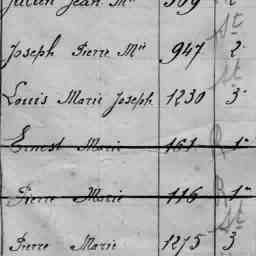 Julien Jean Mie 509 2
St
Joseph Pierre Mie 947 2
St
Louis Marie Joseph 1230 3
Ernest Marie 161 1
Pierre Marie 116 1
St
Pierre Marie 1275 3